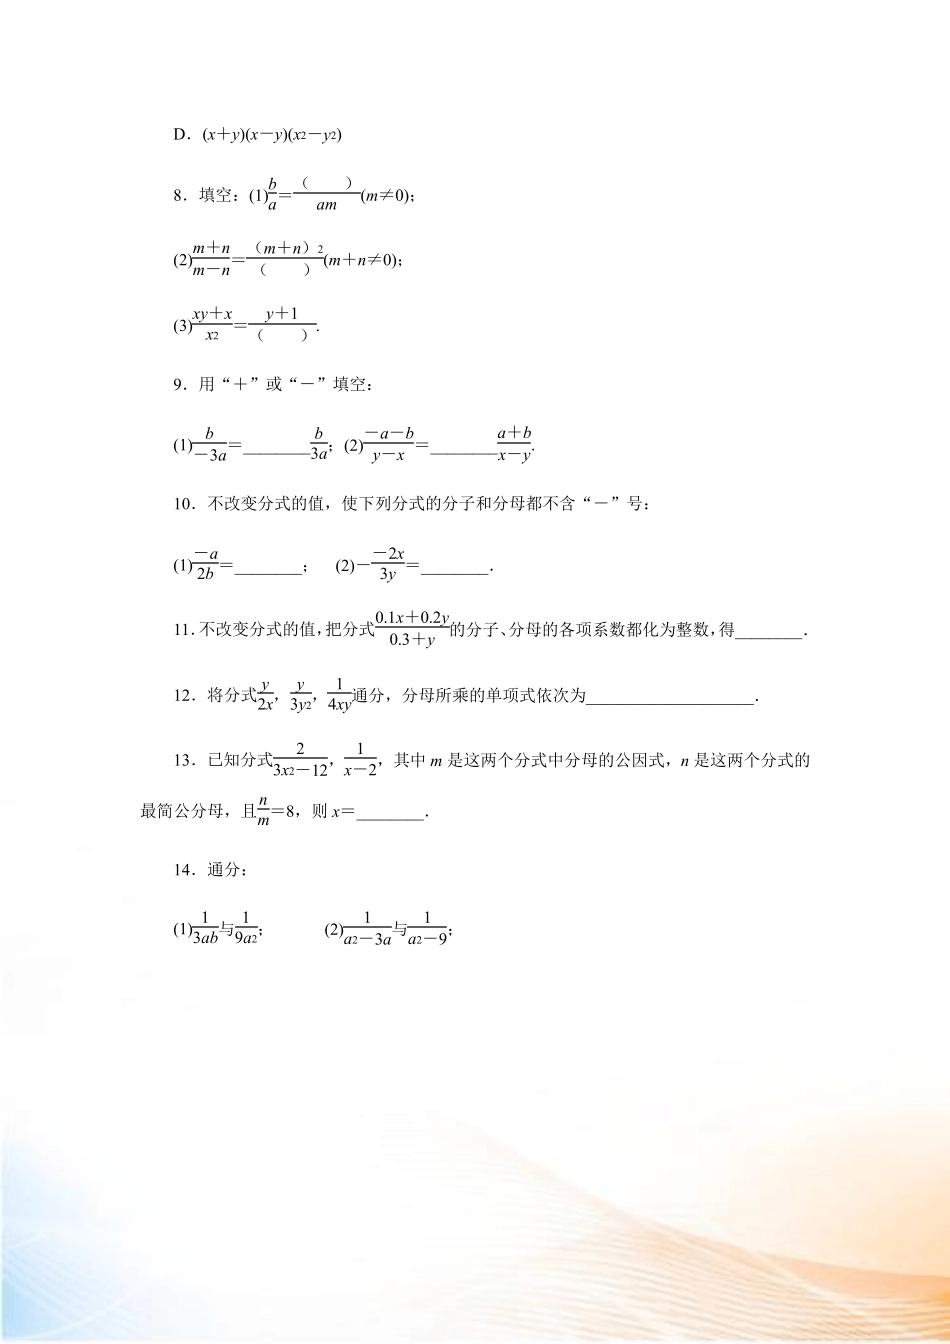 D．(x＋y)(x－y)(x2－y2)
8．填空：(1)b/a＝（　　）/am(m≠0)；
(2)m＋n/m－n＝（m＋n）2/（　　）(m＋n≠0)；
(3)xy＋x/x2＝y＋1/（　　）.
9．用“＋”或“－”填空：
(1)b/－3a＝________b/3a；(2)－a－b/y－x＝________a＋b/x－y.
10．不改变分式的值，使下列分式的分子和分母都不含“－”号：
(1)－a/2b＝________；　(2)－－2x/3y＝________．
11．不改变分式的值，把分式0.1x＋0.2y/0.3＋y的分子、分母的各项系数都化为整数，得________．
12．将分式y/2x，y/3y2，1/4xy通分，分母所乘的单项式依次为____________________．
13．已知分式2/3x2－12，1/x－2，其中 m 是这两个分式中分母的公因式，n 是这两个分式的
最简公分母，且n/m＝8，则 x＝________．
14．通分：
(1)1/3ab与1/9a2；　　(2)1/a2－3a与1/a2－9；